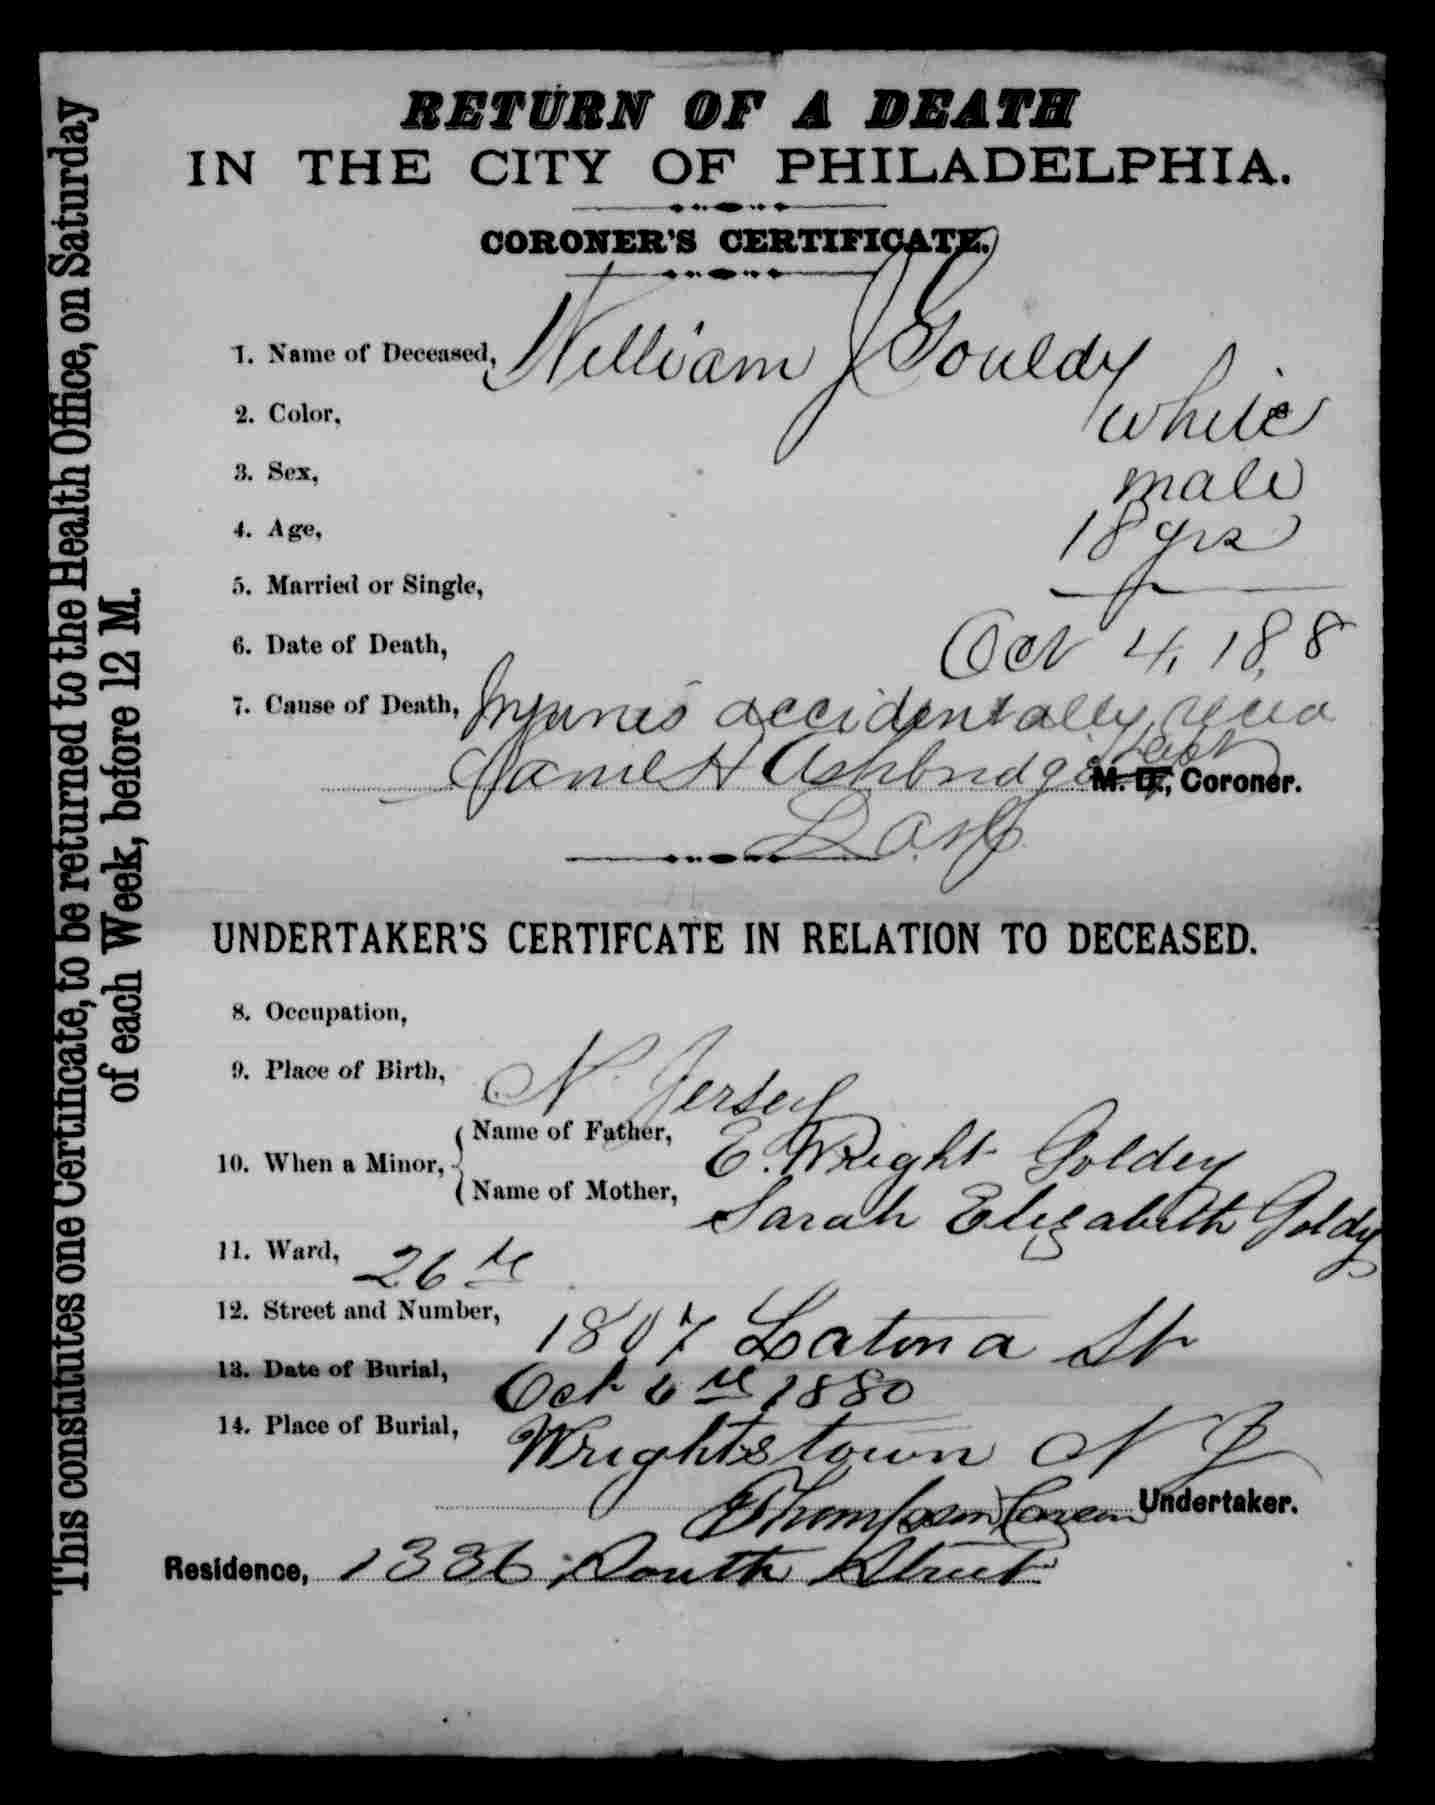 RETURN OF A DEATH
IN THE CITY OF PHILADELPHIA.
CORONER'S CERTIFICATE.
1. Name of Deceased, William J Gouldy
2. Color, White
3. Sex, male
4. Age, 18 yrs
5. Married or Single,
6. Date of Death, Oct 4, 188
7. Cause of Death, Injuries accidentally recd
Ashbridge M. D., Coroner.
UNDERTAKER'S CERTIFCATE IN RELATION TO DECEASED.
8. Occupation,
9. Place of Birth, N. Jersey
10. When a Minor,
Name of Father, E. Wright Goldey
Name of Mother, Sarah Elizabeth Goldy
11. Ward, 26th
12. Street and Number, 1807 Latona St
13. Date of Burial, Oct 6th 1880
14. Place of Burial, Wrightstown N J
Thompson Undertaker.
Residence, 1336 South Street
This constitutes one Certificate, to be returned to the Health Office, on Saturday
of each Week, before 12 M.